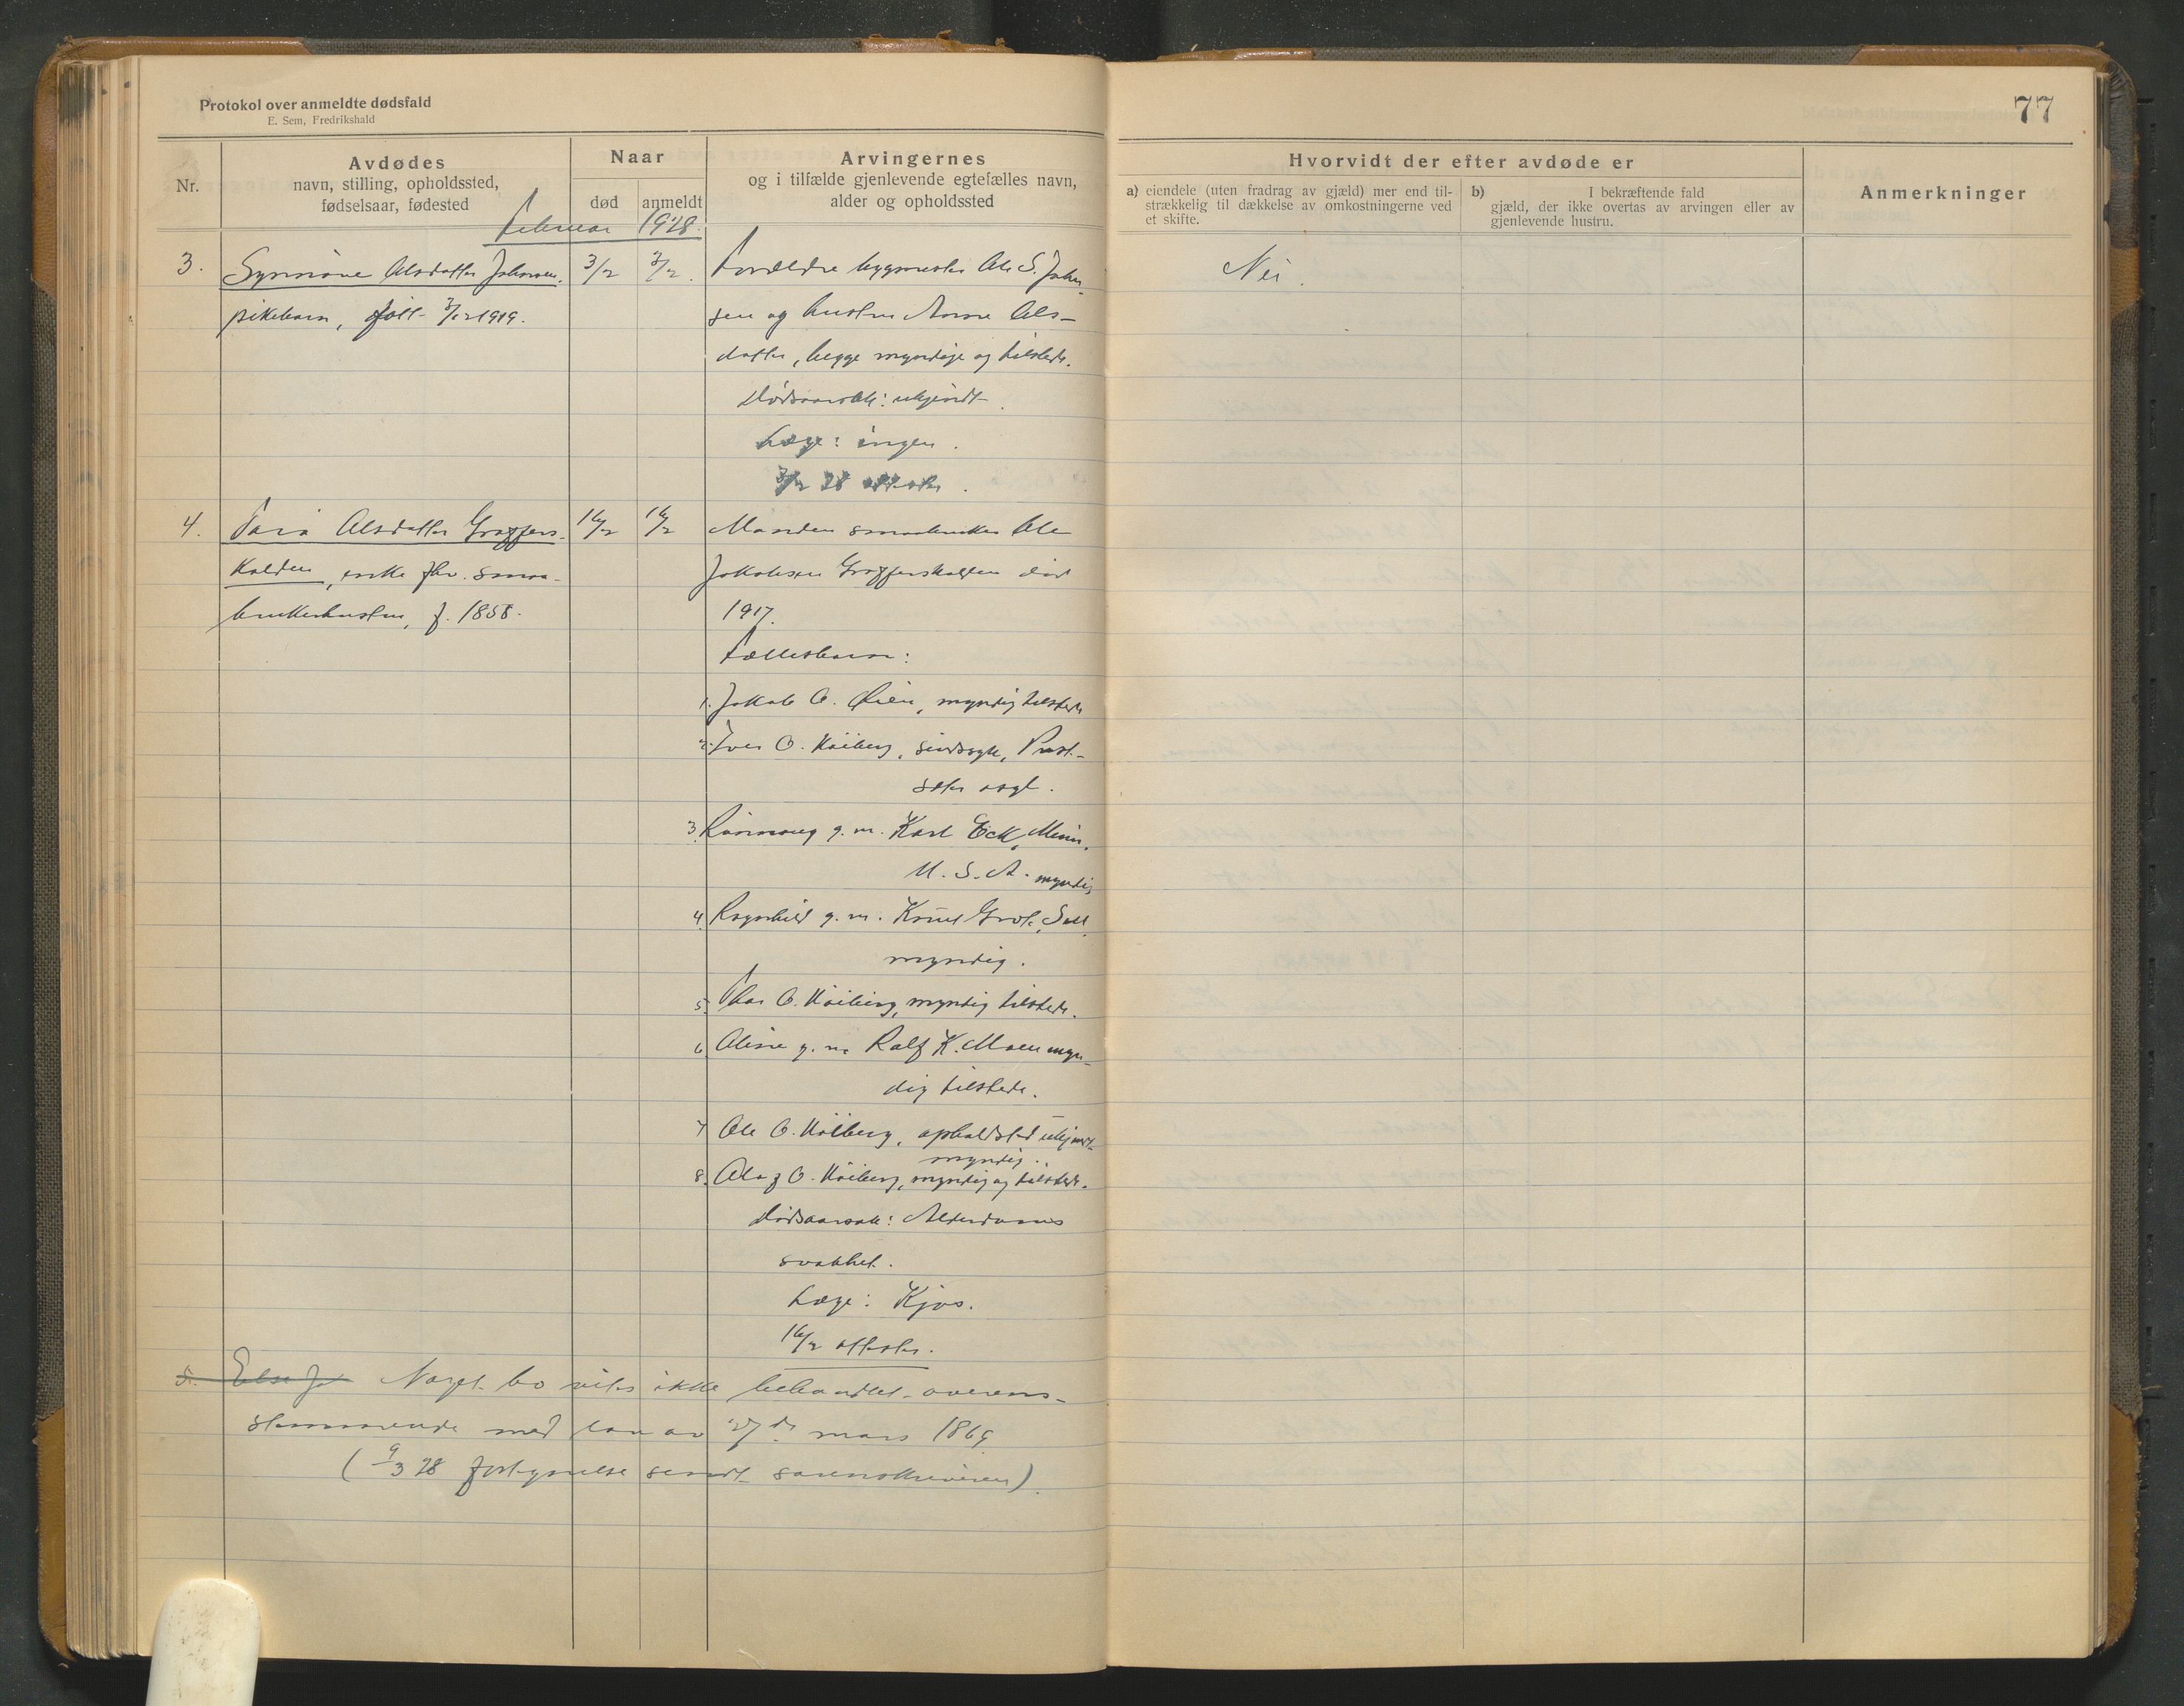 Protokol over anmeldte dødsfald
E. Sem, Fredrikshald
77
Nr.
Avdødes
navn, stilling, opholdssted,
fødselsaar, fødested
Naar
død
anmeldt
Arvingernes
og i tilfælde gjenlevende egtefælles navn,
alder og opholdssted
Hvorvidt der efter avdøde er
a) eiendele (uten fradrag av gjæld) mer end til-
strækkelig til dækkelse av omkostningerne ved
et skifte.
b) I bekræftende fald
gjæld, der ikke overtas av arvingen eller av
gjenlevende hustru.
Anmerkninger
Februar 1928.
3. Synnøve Olsdatter Johnsen. 3/2 3/2. Forældre bygmester Ole S. John-
pikebarn, født 3/12 1919. sen og hustru Anne Ols-
datter, begge myndige og tilstede.
Dødsaarsak: ukjendt.
Læge: ingen.
3/2 28 attester.
Nei.
4. Olsdatter 16/2 16/2 Manden smaabruker Ole
enke fhv. smaa- Jakobsen død
brukerhustru, f. 1858. 1917.
Fællesbarn:
1. Jakob O. Øien, myndig tilstede
2. Iver O. Höiberg, sindssyk, Prest-
seter asyl.
3. Rönnaug g. m. Karl Eck, Minn.
U. S. A. myndig
4. Ragnhild g. m. Knut Sell.
myndig.
5. Thor O. Höiberg, myndig tilstede.
6. Oline g. m. Rolf K. Moen myn-
dig tilstede.
7 Ole O. Höiberg, opholdsted ukjendt
myndig.
8. Olaf O. Höiberg, myndig og tilstede.
Dødsaarsak: Alderdoms
svakhet.
Læge: Kjos.
16/2 attester.
5. Noget bo vites ikke behandlet overens-
stemmende med lov av 27de mars 1869
(9/3 28 fortegnelse sendt sorenskriveren).